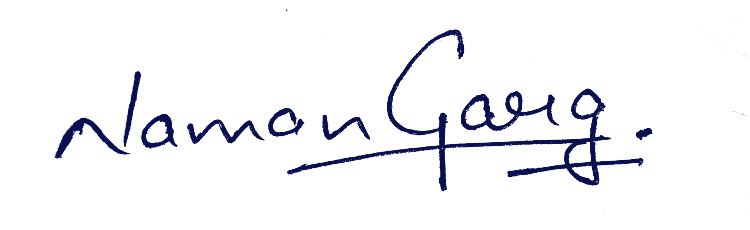 Naman Garg.